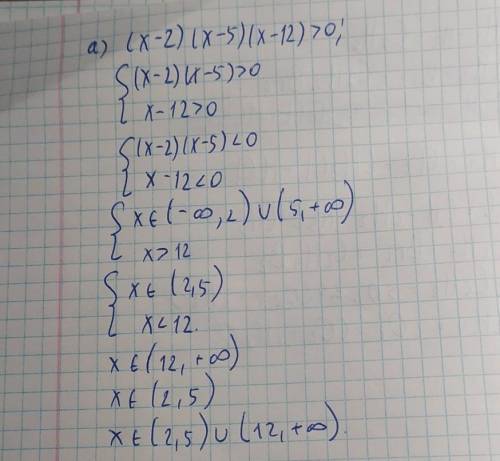 а) (x-2)(x-5)(x-12)>0;
{(x-2)(x-5)>0
x-12>0
{(x-2)(x-5)<0
x-12<0
{x∈(-∞,2)∪(5,+∞)
x>12
{x∈(2,5)
x<12.
x∈(12,+∞)
x∈(2,5)
x∈(2,5)∪(12,+∞).